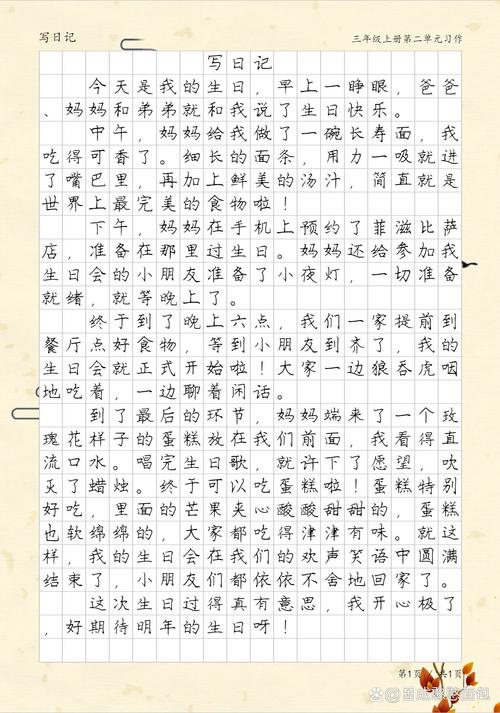 写日记
三年级上册第二单元习作
写日记
今天是我的生日，早上一睁眼，爸爸
、妈妈和弟弟就和我说了生日快乐。
中午，妈妈给我做了一碗长寿面，我
吃得可香了。细长的面条，用力一吸就进
了嘴巴里，再加上鲜美的汤汁，简直就是
世界上最完美的食物啦！
下午，妈妈在手机上预约了菲滋比萨
店，准备在那里过生日。妈妈还给参加我
生日会的小朋友准备了小夜灯，一切准备
就绪，就等晚上了。
终于到了晚上六点，我们一家提前到
餐厅点好食物，等到小朋友到齐了，我的
生日会就正式开始啦！大家一边狼吞虎咽
地吃着，一边聊着闲话。
到了最后的环节，妈妈端来了一个玫
瑰花样子的蛋糕放在我们前面，我看得直
流口水。唱完生日歌，就许下了愿望，吹
灭了蜡烛。终于可以吃蛋糕啦！蛋糕特别
好吃，里面的芒果夹心酸酸甜甜的，蛋糕
也软绵绵的，大家都吃得津津有味。就这
样，我的生日会在我们的欢声笑语中圆满
结束了，小朋友们都依依不舍地回家了。
这次生日过得真有意思，我开心极了
，好期待明年的生日呀！
第1页 / 共1页